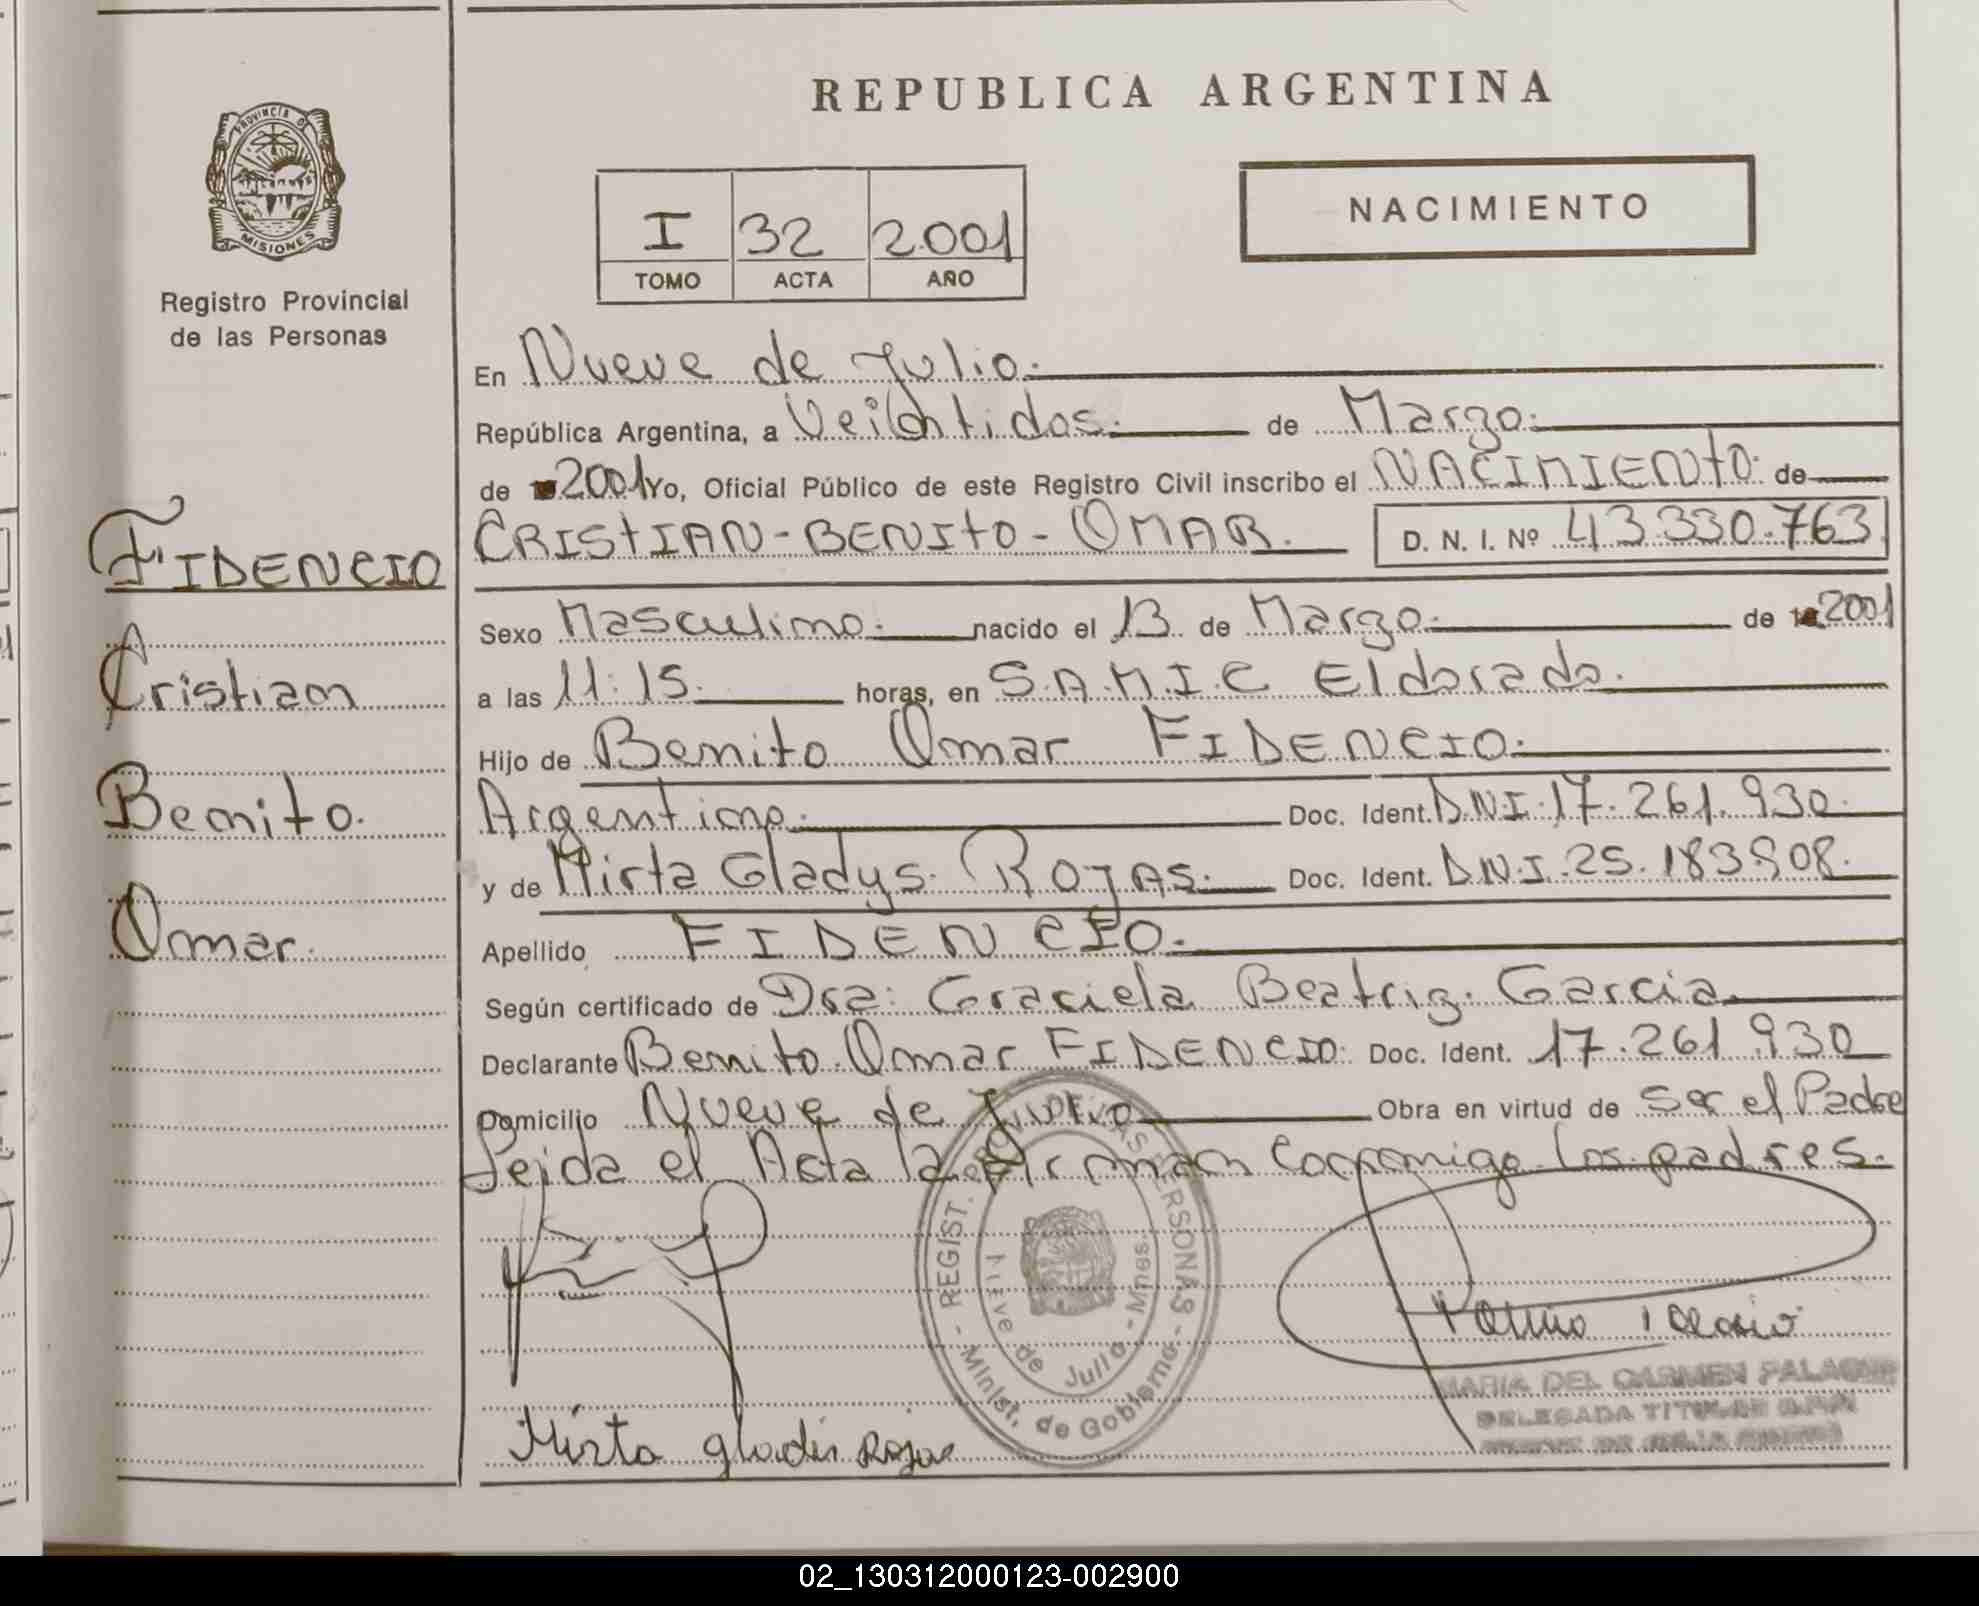 REPUBLICA ARGENTINA
PROVINCIA DE
MISIONES
Registro Provincial
de las Personas
I 32 2001
TOMO ACTA AÑO
NACIMIENTO
En Nueve de Julio.
República Argentina, a Veintidos. de Marzo.
de 2001 Yo, Oficial Público de este Registro Civil inscribo el NACIMIENTO de
CRISTIAN-BENITO-OMAR. D. N. I. Nº 43.330.763
FIDENCIO
Cristian
Benito.
Omar.
Sexo Masculino. nacido el 13 de Marzo. de 2001
a las 11:15. horas, en S.A.M.I.C Eldorado.
Hijo de Benito Omar FIDENCIO.
Argentino. Doc. Ident. D.N.I. 17.261.930.
y de Mirta Gladys ROJAS. Doc. Ident. D.N.I. 25.183.908.
Apellido FIDENCIO.
Según certificado de Dra: Graciela Beatriz Garcia
Declarante Benito Omar FIDENCIO. Doc. Ident. 17.261.930
Domicilio Nueve de Julio Obra en virtud de Ser el Padre
Leida el Acta la firman conmigo los padres.
REGIST. DE LAS PERSONAS
Nueve de Julio - Mnes.
Minist. de Gobierno
Mirta gladis Rojas
MARIA DEL CARMEN
DELEGADA TITULAR
02_130312000123-002900